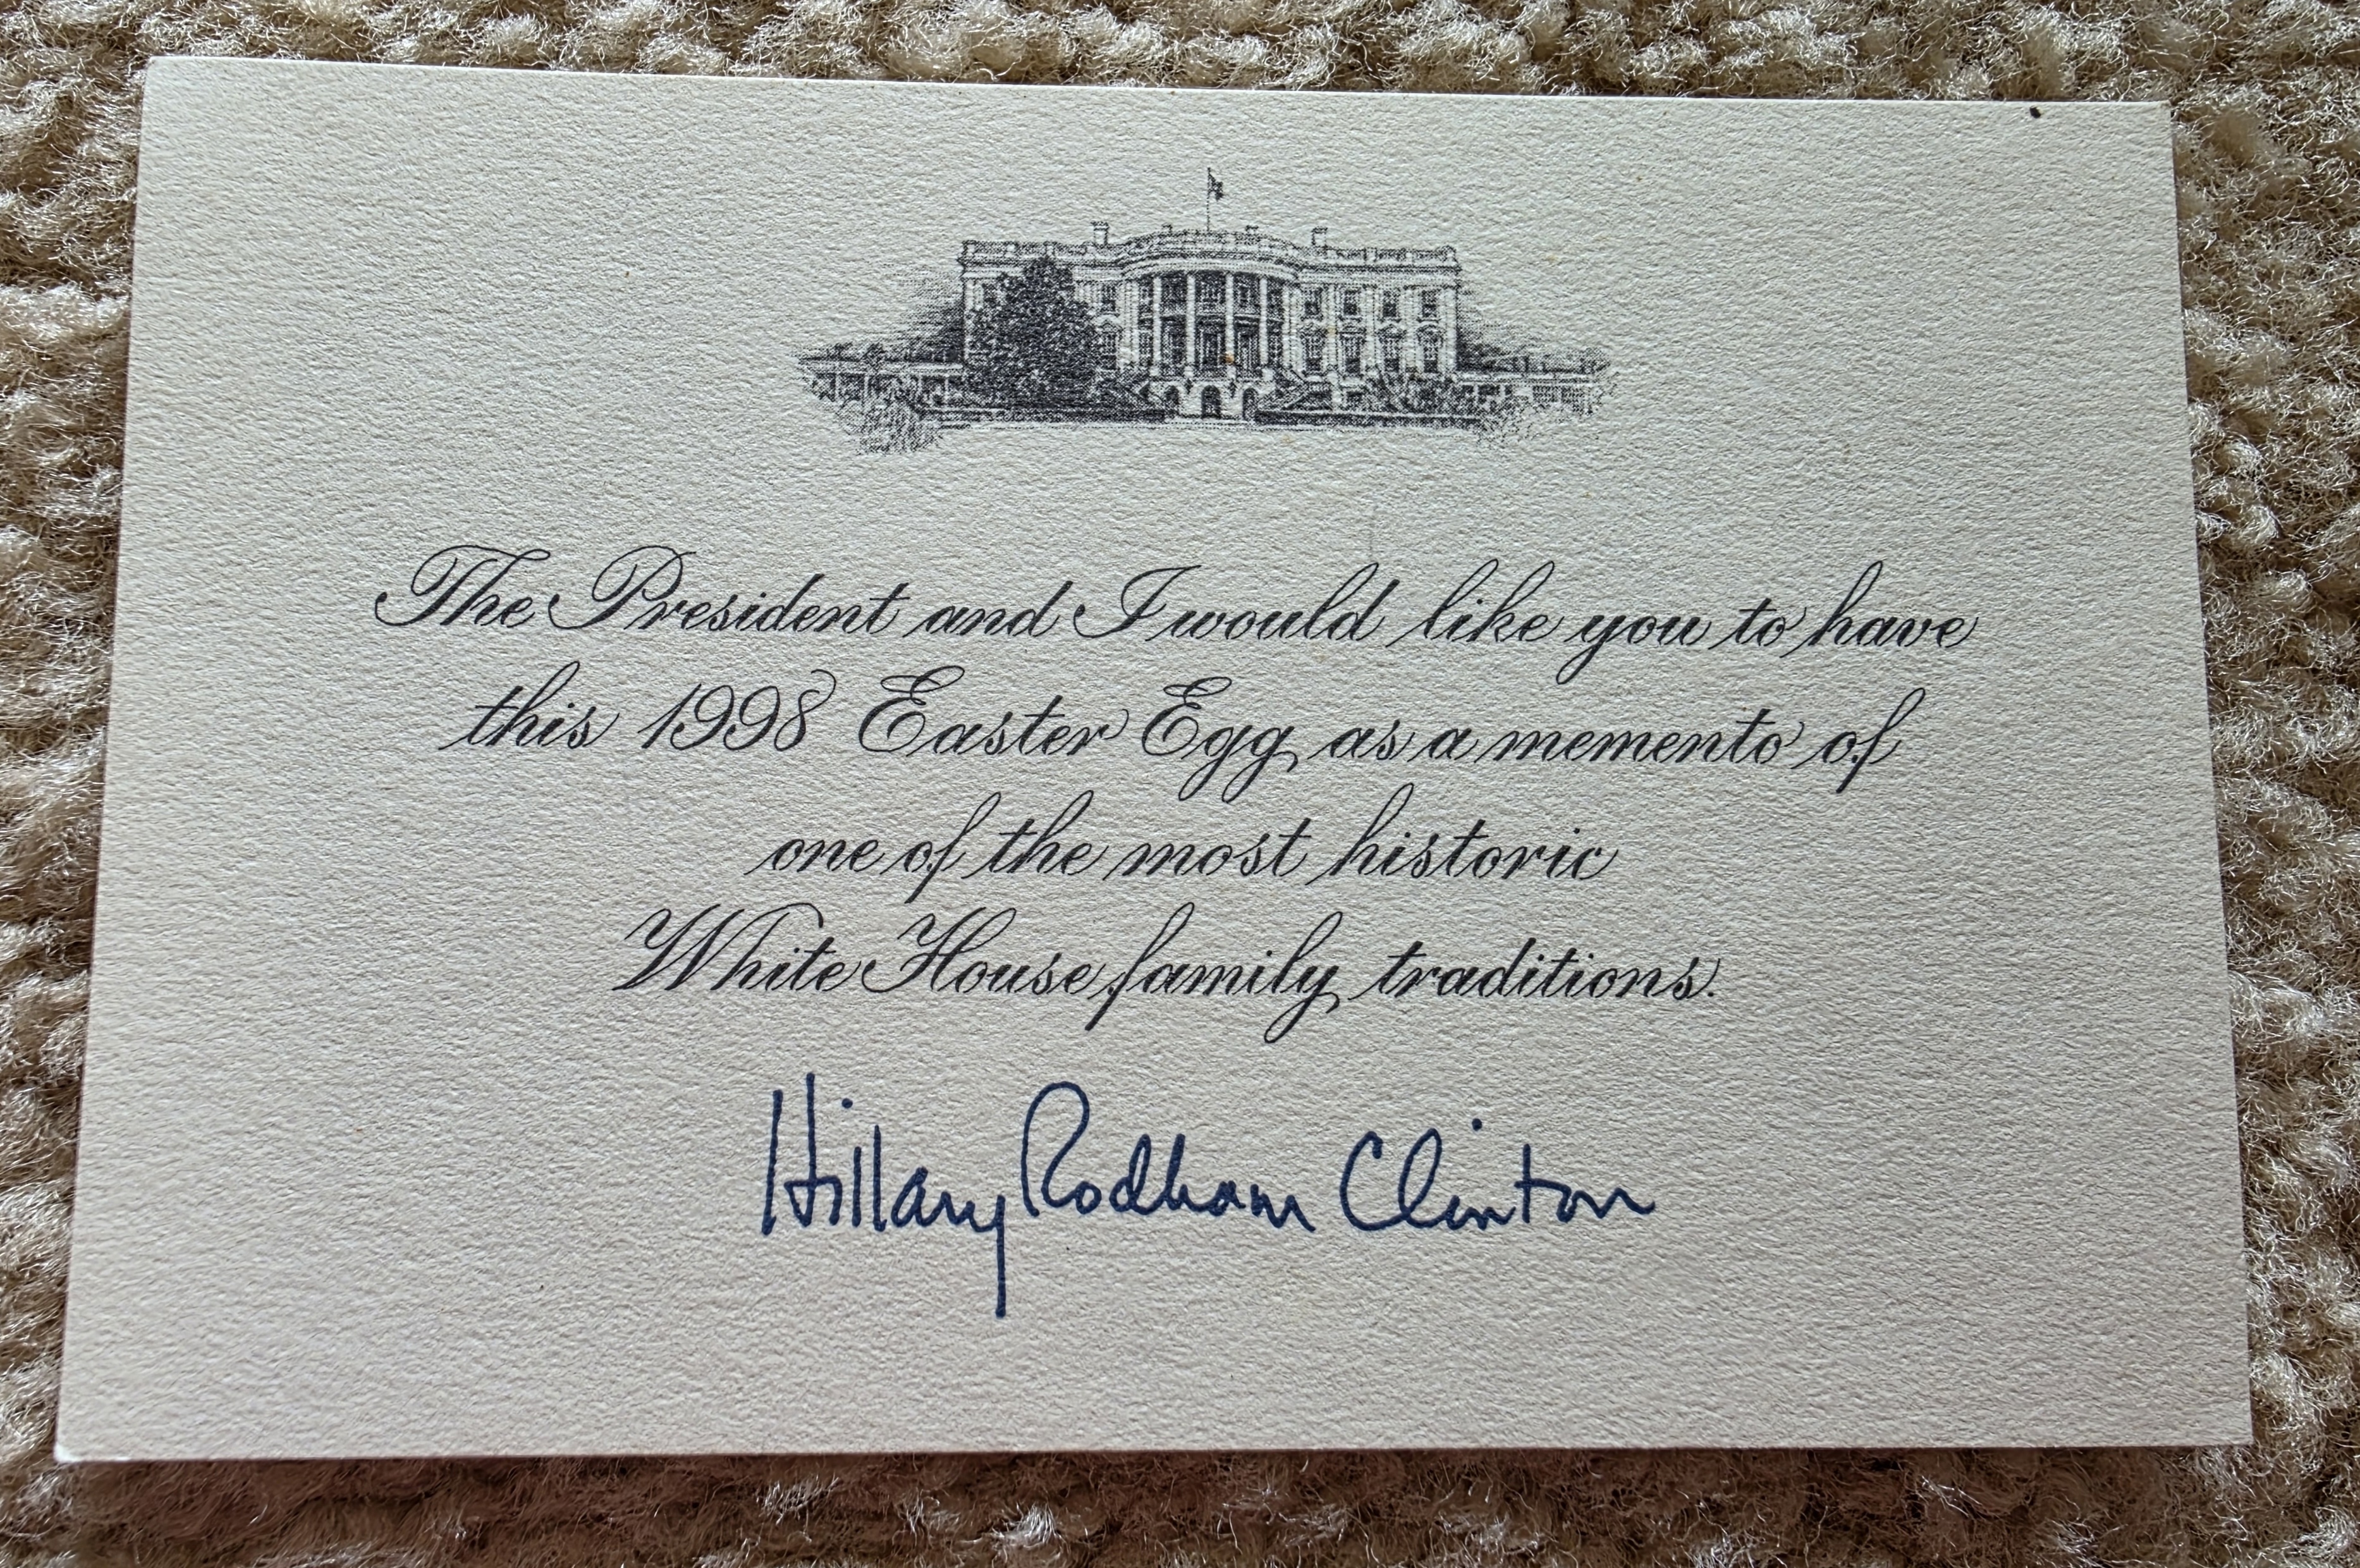 The President and I would like you to have
this 1998 Easter Egg as a memento of
one of the most historic
White House family traditions.
Hillary Rodham Clinton